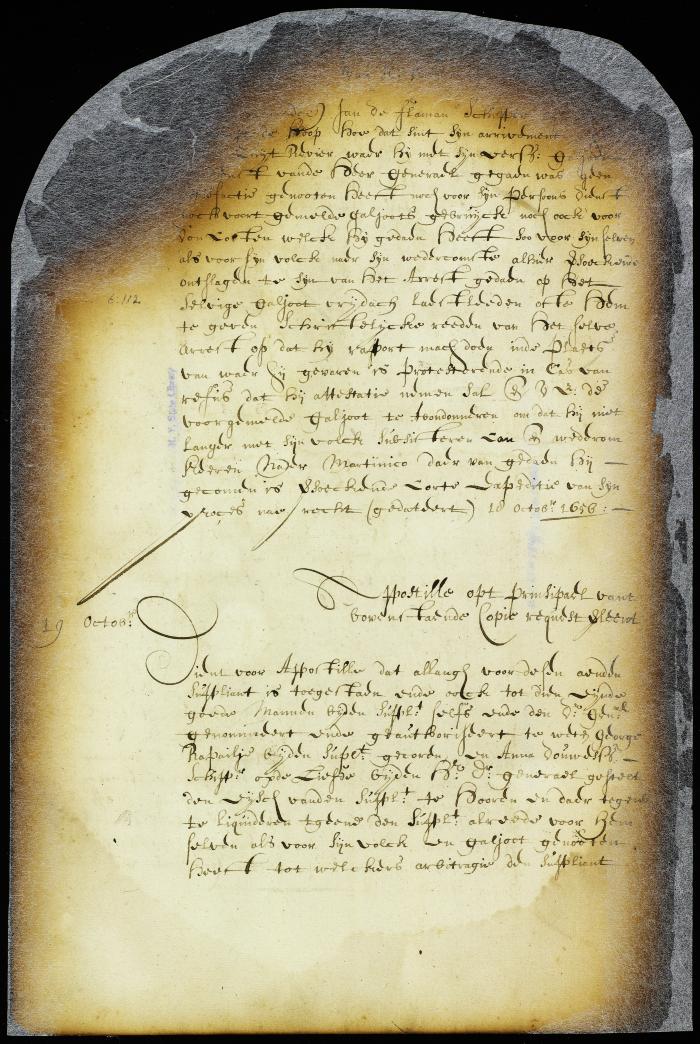 Jan de flaman Schipp
de Hoop hoe dat sint syn arrivement
Revier waer hy met syn versz:
vande Heer Generael gegaen was geen
genooten heeft noch voor syn Persoons dienst
noch voort gemelde Galjoots gebruyck noch oock voor
Costen welck hy gedaen heeft soo voor syn selven
als voor syn volck naer syn wedercomste alhier
ontslagen te syn van het Arrest gedaen op het
selvige Galjoot vrydach laestleeden ofte hem
6:112
te geven Schriftelycke reeden van het selve
Arrest op dat hy rapport mach doen inde Plaets
van waer hy gevaren is Protesterende in Cas van
refus dat hy attestatie nemen sal
voorgemelde Galjoot te abondonneren om dat hy niet
langer met syn volck subsisteren Can & wederom
keeren Naer Martinico daer van gedaen hy —
gecomen is Corte Expeditie van syn
proces nae recht (gedateert) 18 Octobr: 1656: —
Appostille opt Prinsipael vant
19 Octobr: bovenstaende Copie request
Dient voor Appostille dat allangh voor desen aenden
Suppliant is toegestaen ende oock tot dien eynde
goede Mannen byden Supplt: selfs ende den Hr: Genrl
genommeert ende geauthoriseert te weten George
Rapailje byden Suplt: gecoren, en
Schippr: opde Liefde byden Hr: Generael gestelt
den eysch vanden Supplt: te hooren en daer tegens
te liquideren tgeene den Supplt: alreede voor hem
selven als voor syn volck en galjoot genooten
heeft tot welckers arbitragie den Suppliant